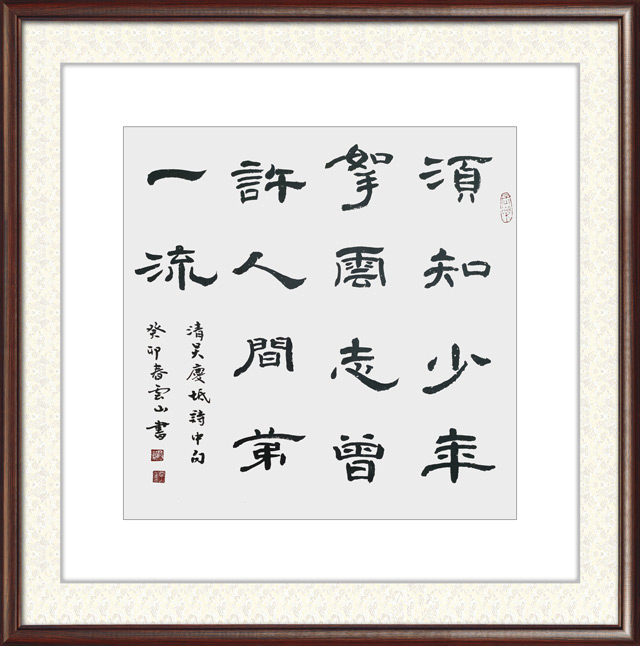 須知少年
挐雲志曾
許人間第
一流
清吴慶坻詩中句
癸卯春云山書